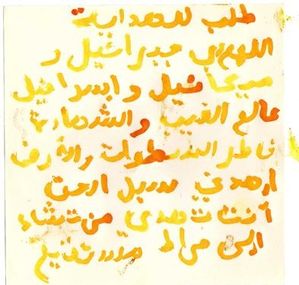 طلب للهداية
اللهم رب جبرائيل و
ميكائيل و اسرافيل
عالم الغيب والشهادة
فاطر السموات والأرض
اهدني الحق
أنت تهدي من تشاء
إلى صراط مستقيم